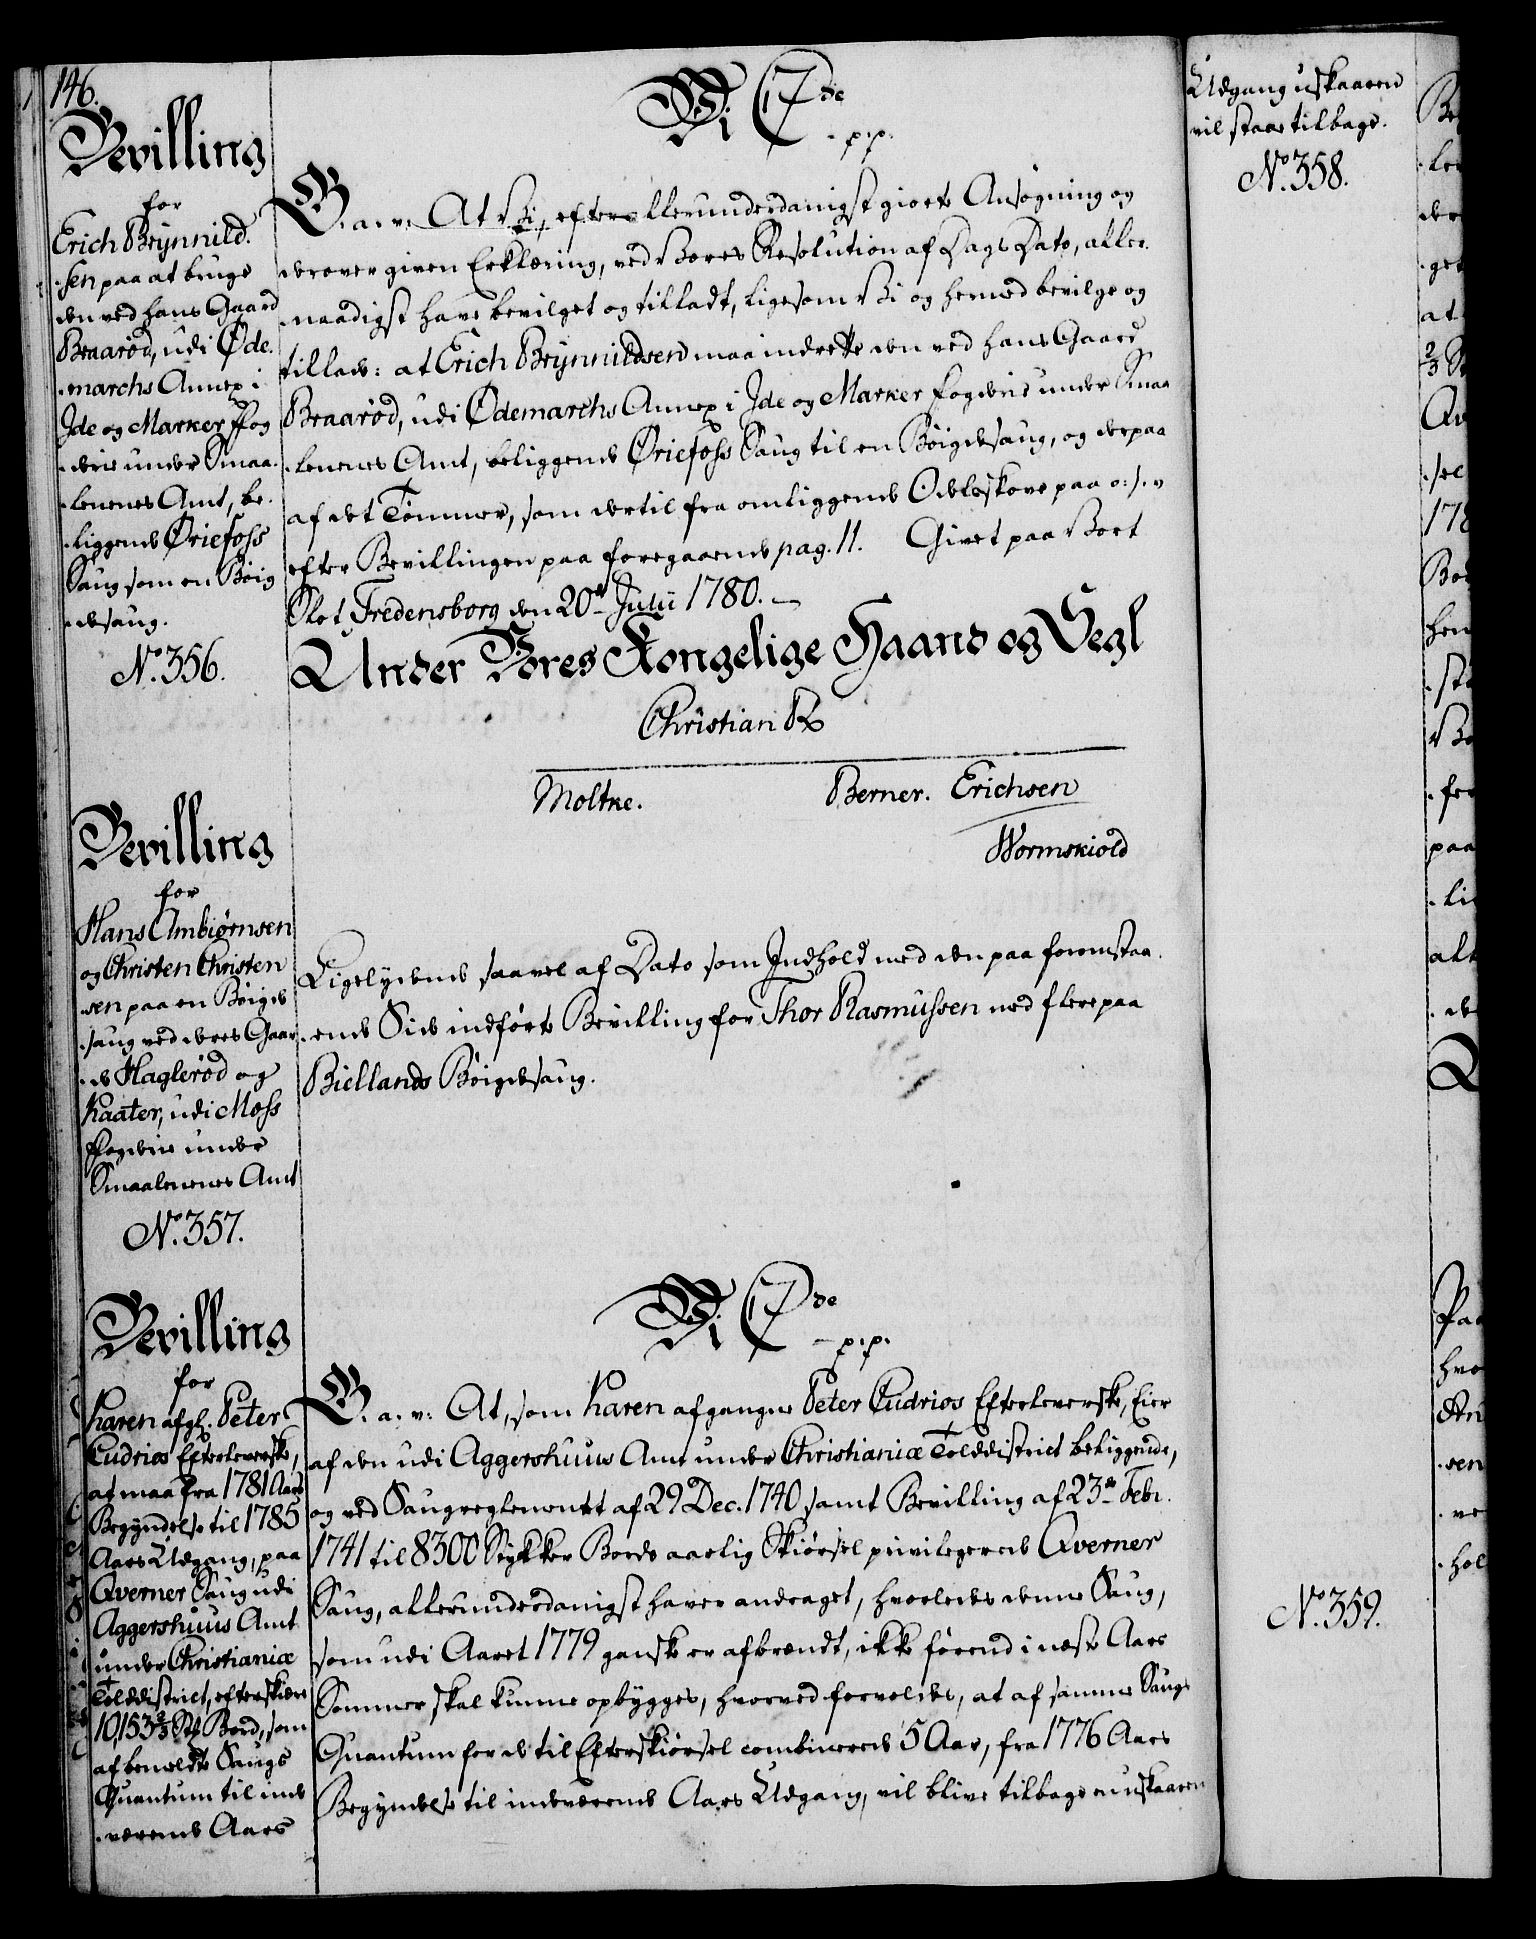 146.
Bevilling
for
Erich Brynnild.
.sen paa at bruge
den ved hans Gaard
Braarød, udi Øde.
.marchs Annex i
Ide og Marker Fog
.derie under Smaa.
.lenenes Amt, be.
.liggende Øriefoss
Saug som en Böig
.desaug.
No. 356.
Vi C 7de
- p.p.
G. a. v: At Vi, efter allerunderdanigst giorte Ansøgning og
derover given Erklæring, ved Vores Resolution af Dags Dato, aller.
.naadigst have bevilget og tilladt, ligesom Vi og hermed bevilge og
tillade: at Erich Brynnildsen maa indrette den ved hans Gaard
Braarød, udi Ødemarchs Annex i Ide og Marker Fogderie under Smaa
.lenenes Amt, beliggende Øriefoss Saug til en Böigdesaug, og derpaa
af det Tømmer, som dertil fra omliggende Odelsskove paa o: s: v
efter Bevillingen paa foregaaende pag. 11. Givet paa Vort
Slot Fredensborg den 20de Julii 1780. -
Under Vores Kongelige Haand og Segl
Christian R
Moltke. Berner. Erichsen
Wormskiold
Bevilling
for
Hans Ambiørnsen
og Christen Christen
.sen paa en Böigde
.saug ved deres Gaar
.de Haglerød og
Kaater, udi Moss
Fogderie under
Smaalenenes Amt
No. 357.
Ligelydende saavel af Dato som Indhold med den paa foromstaa.
.ende Side indførte Bevilling for Thor Rasmussen med flere paa
Biellands Böigdesaug.
Bevilling
for
Karen afgl. Peter
Cudrios Efterleverske,
at maa fra 1781 Aars
Begyndelse til 1785
Aars Udgang, paa
Qverner Saug udi
Aggershuus Amt
under Christianiæ
Tolddistrict, efterskiære
10,153 2/3 Stk Bord, som
af bemeldte Saugs
Quantum til inde
.værende Aars
Vi C 7de
- p.p.
G. a. v: At, som Karen afgangne Peter Cudrios Efterleverske, Eier
af den udi Aggershuus Amt under Christianiæ Tolddistrict beliggende,
og ved Saugreglementet af 29 Dec. 1740 samt Bevilling af 23de Febr.
1741 til 8300 Stykker Bords aarlig Skiørsel privilegerede Qverner
Saug, allerunderdanigst haver andraget, hvorledes denne Saug,
som udi Aaret 1779 ganske er afbrændt, ikke førend i næste Aars
Sommer skal kunne opbygges, hvorved forvoldes, at af samme Saugs
Quantum for de til Efterskiørsel combinerede 5 Aar, fra 1776 Aars
Begyndelse til indeværende Aars Udgang, vil blive tilbage uskaaren
Udgang uskaaren
vil staae tilbage.
No. 358.
No. 359.